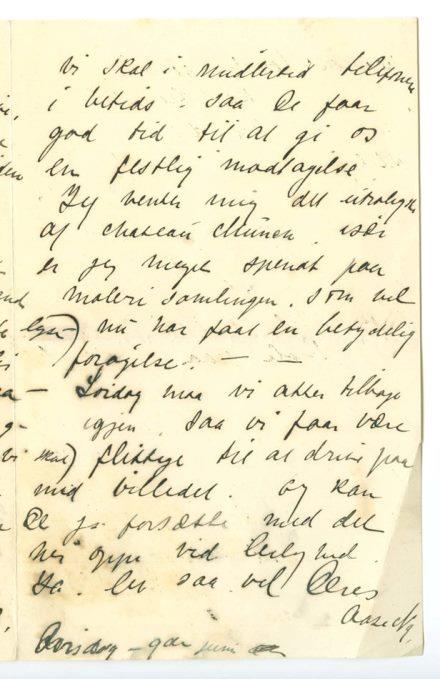 vi skal i midlertid telefonere
i betids. saa De faar
god tid til at gi os
en festlig modtagelse
Jeg venter mig det utroligste
af chateau Munch. især
er jeg meget spendt paa
maleri samlingen, som vel
nu har faat en betydelig
forøgelse. — —
Lördag maa vi atter tilbage
igjen. saa vi faar være
flittige til at drive paa
med billedet. og kan
De jo forsætte med det
her oppe ved Leilighed.
Ja. lev saa vel Deres